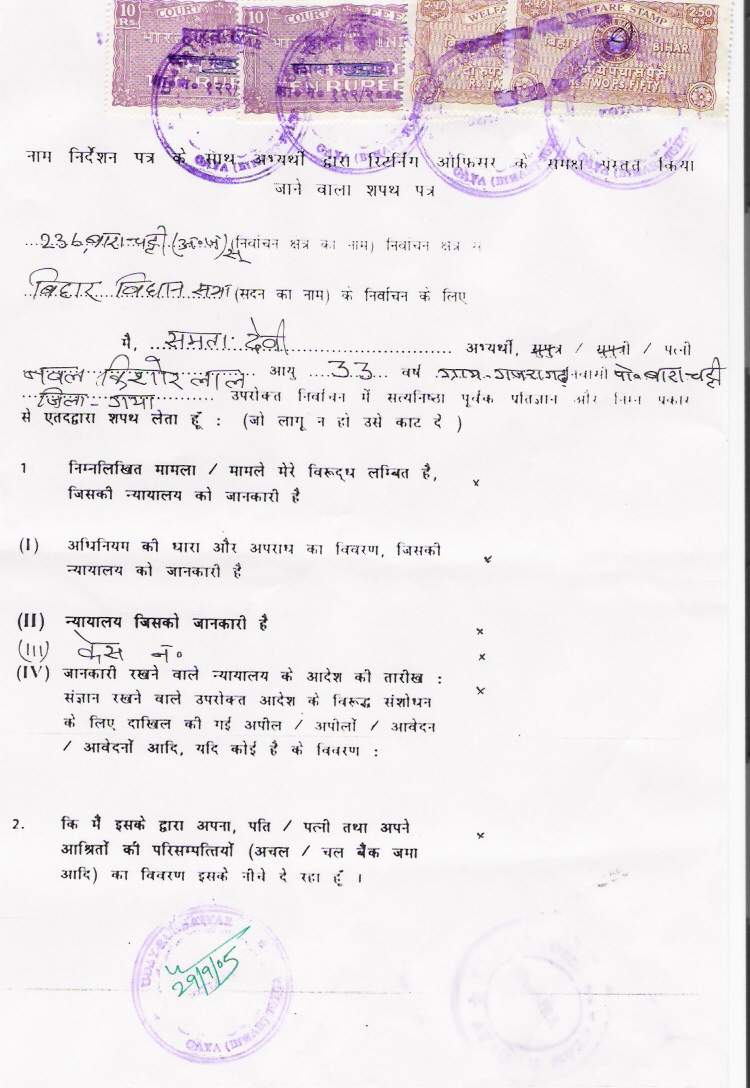 10 COURT FEE 10 COURT FEE WELFARE WELFARE STAMP 2.50
Rs. भारत Rs. भारत INDIA बिहार बिहार BIHAR Rs.
TEN RUPEES RS TWO PS. FIFTY
नाम निर्देशन पत्र के साथ अभ्यर्थी द्वारा रिटर्निंग ऑफिसर के समक्ष प्रस्तुत किया
जाने वाला शपथ पत्र
236, बाराचट्टी (अ०जा०) (निर्वाचन क्षेत्र का नाम) निर्वाचन क्षेत्र से
बिहार विधान सभा (सदन का नाम) के निर्वाचन के लिए
मै, समता देवी अभ्यर्थी, सुपुत्र / सुपुत्री / पत्नी
नवल किशोर लाल आयु 33 वर्ष ग्राम-गजरागढ़ निवासी पो०बाराचट्टी
जिला-गया उपरोक्त निर्वाचन में सत्यनिष्ठा पूर्वक प्रतिज्ञान और निम्न प्रकार
से एतदद्वारा शपथ लेता हूँ : (जो लागू न हो उसे काट दे )
1 निम्नलिखित मामला / मामले मेरे विरूद्ध लम्बित है, x
जिसकी न्यायालय को जानकारी है
(I) अधिनियम की धारा और अपराध का विवरण, जिसकी x
न्यायालय को जानकारी है
(II) न्यायालय जिसको जानकारी है x
(III) केस नं० x
(IV) जानकारी रखने वाले न्यायालय के आदेश की तारीख :
संज्ञान रखने वाले उपरोक्त आदेश के विरूद्ध संशोधन x
के लिए दाखिल की गई अपील / अपीलों / आवेदन
/ आवेदनों आदि, यदि कोई है के विवरण :
2. कि मै इसके द्वारा अपना, पति / पत्नी तथा अपने x
आश्रितों की परिसम्पत्तियों (अचल / चल बैंक जमा
आदि) का विवरण इसके नीचे दे रहा हूँ ।
29/9/05
GAYA (BIHAR)